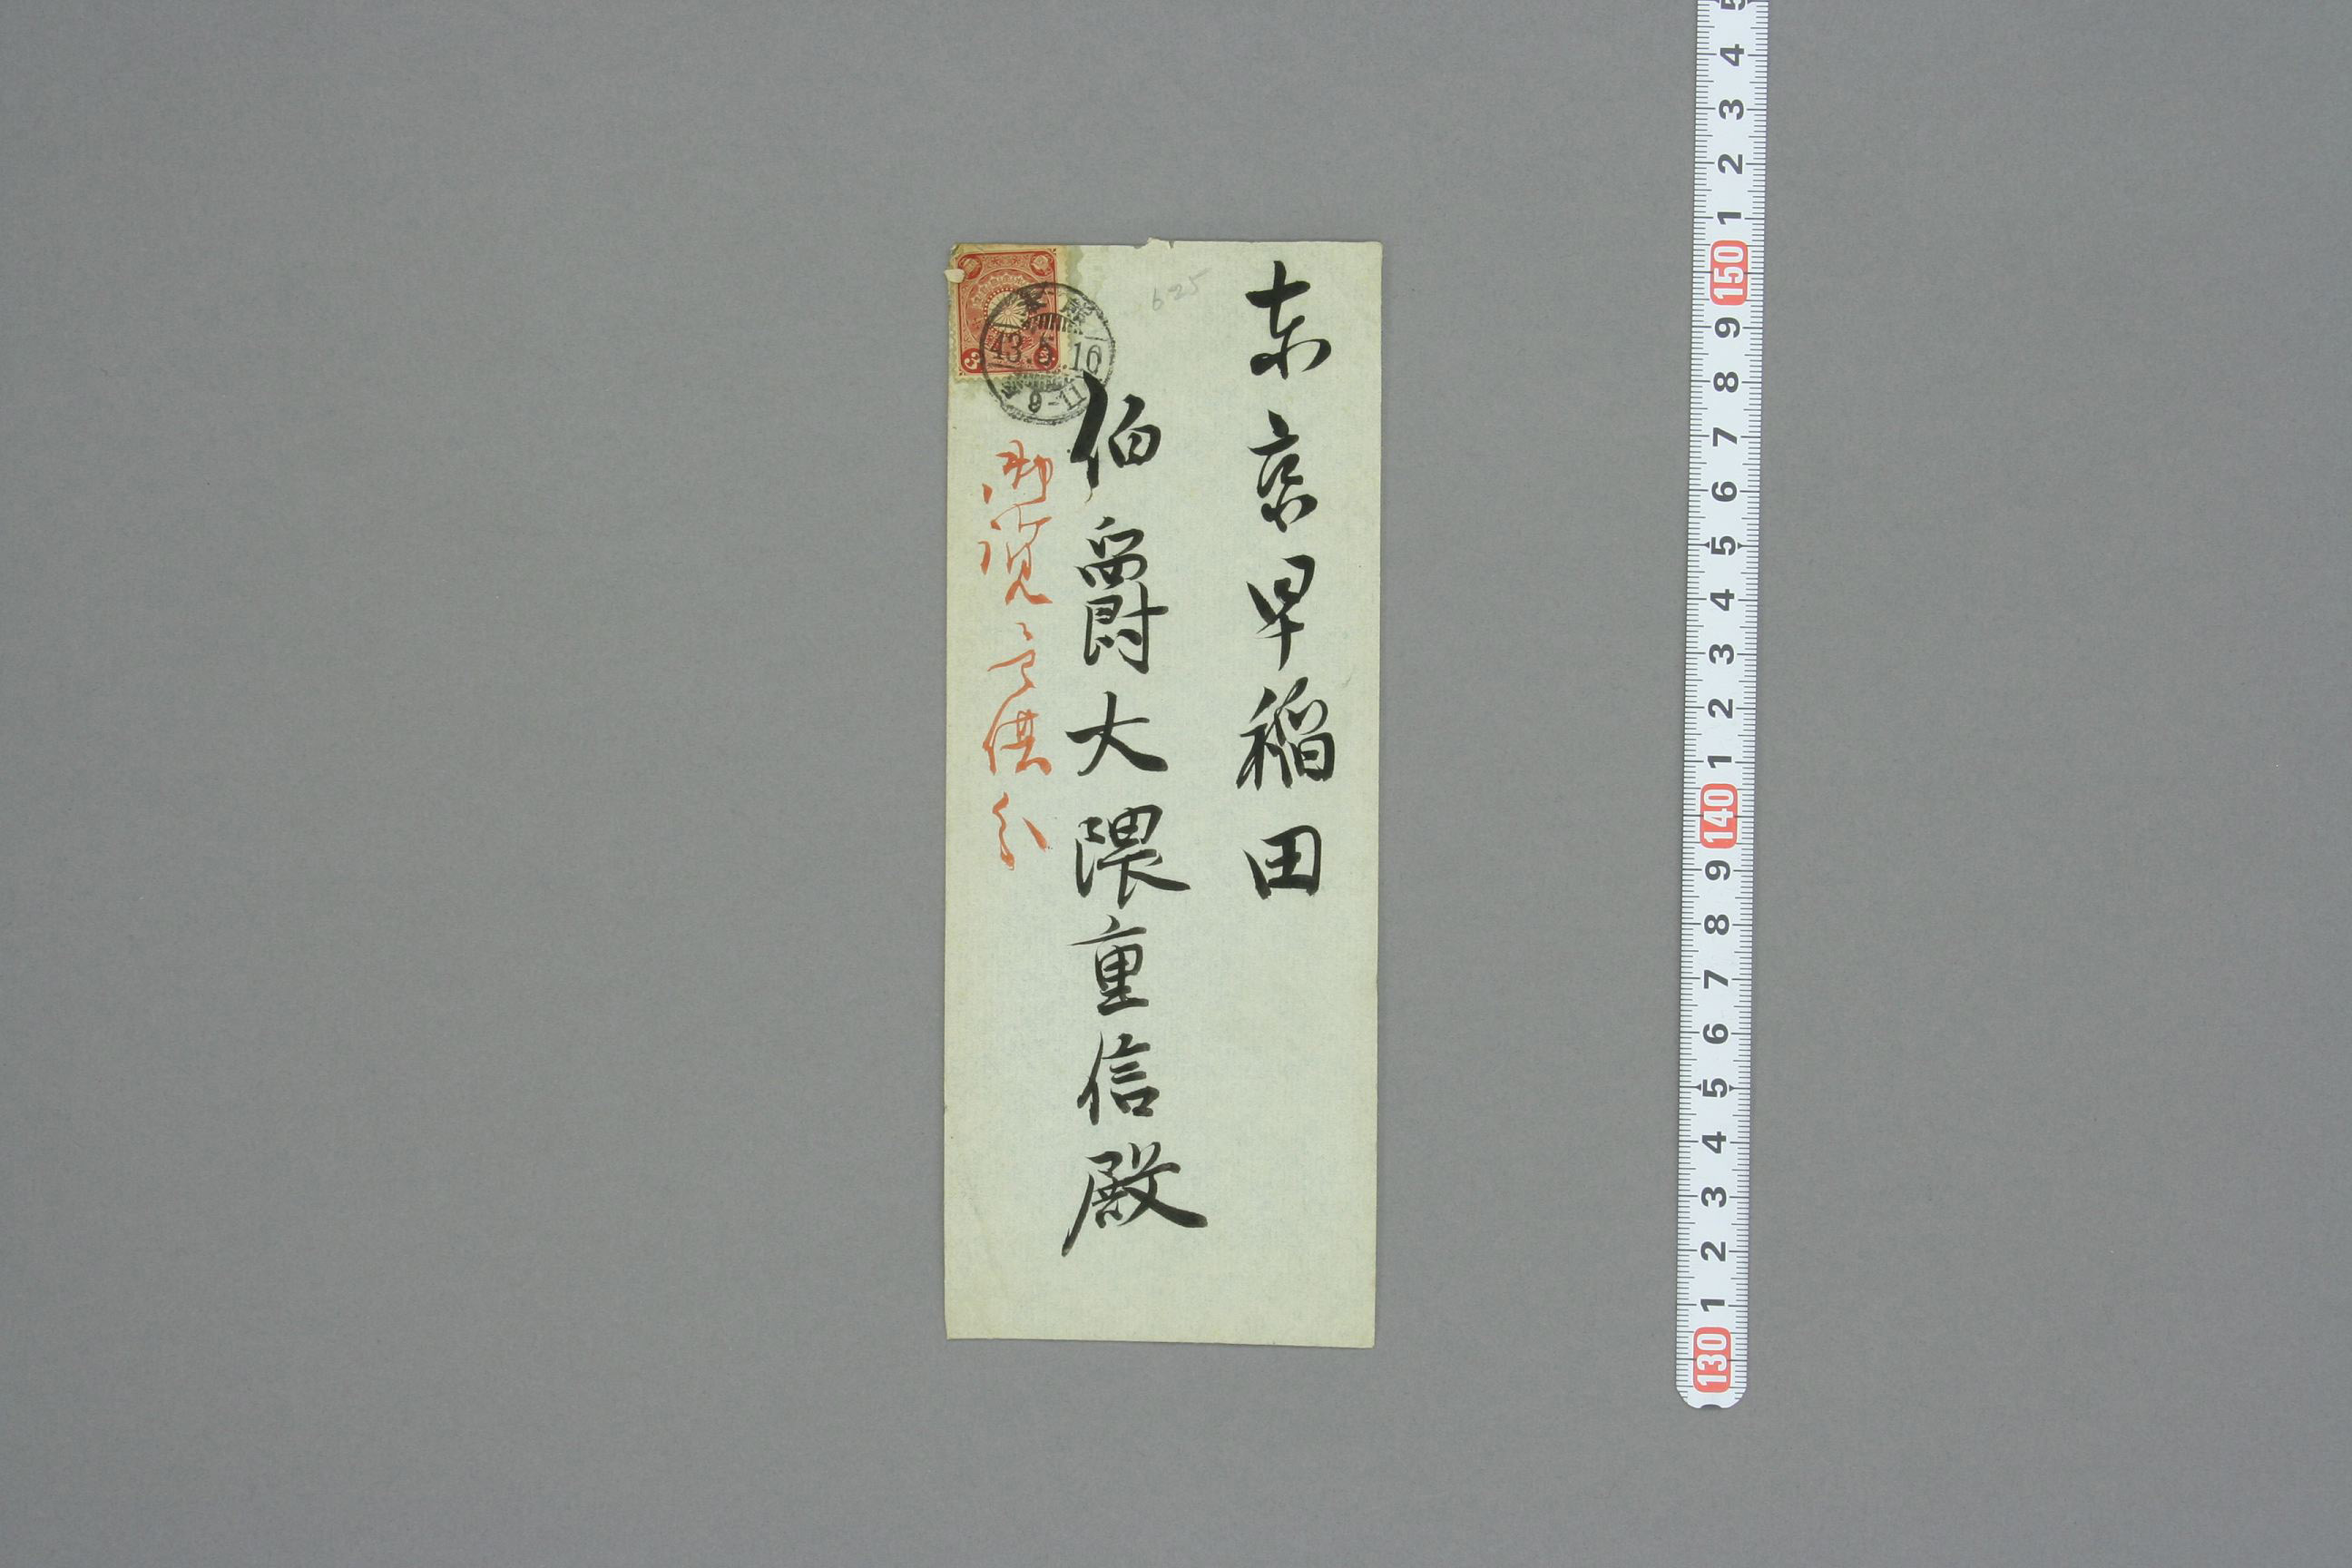 东京早稲田
伯爵大隈重信殿
43.5.16
9-11
6-25
5
4
3
2
1
150
9
8
7
6
5
4
3
2
1
140
9
8
7
6
5
4
3
2
1
130